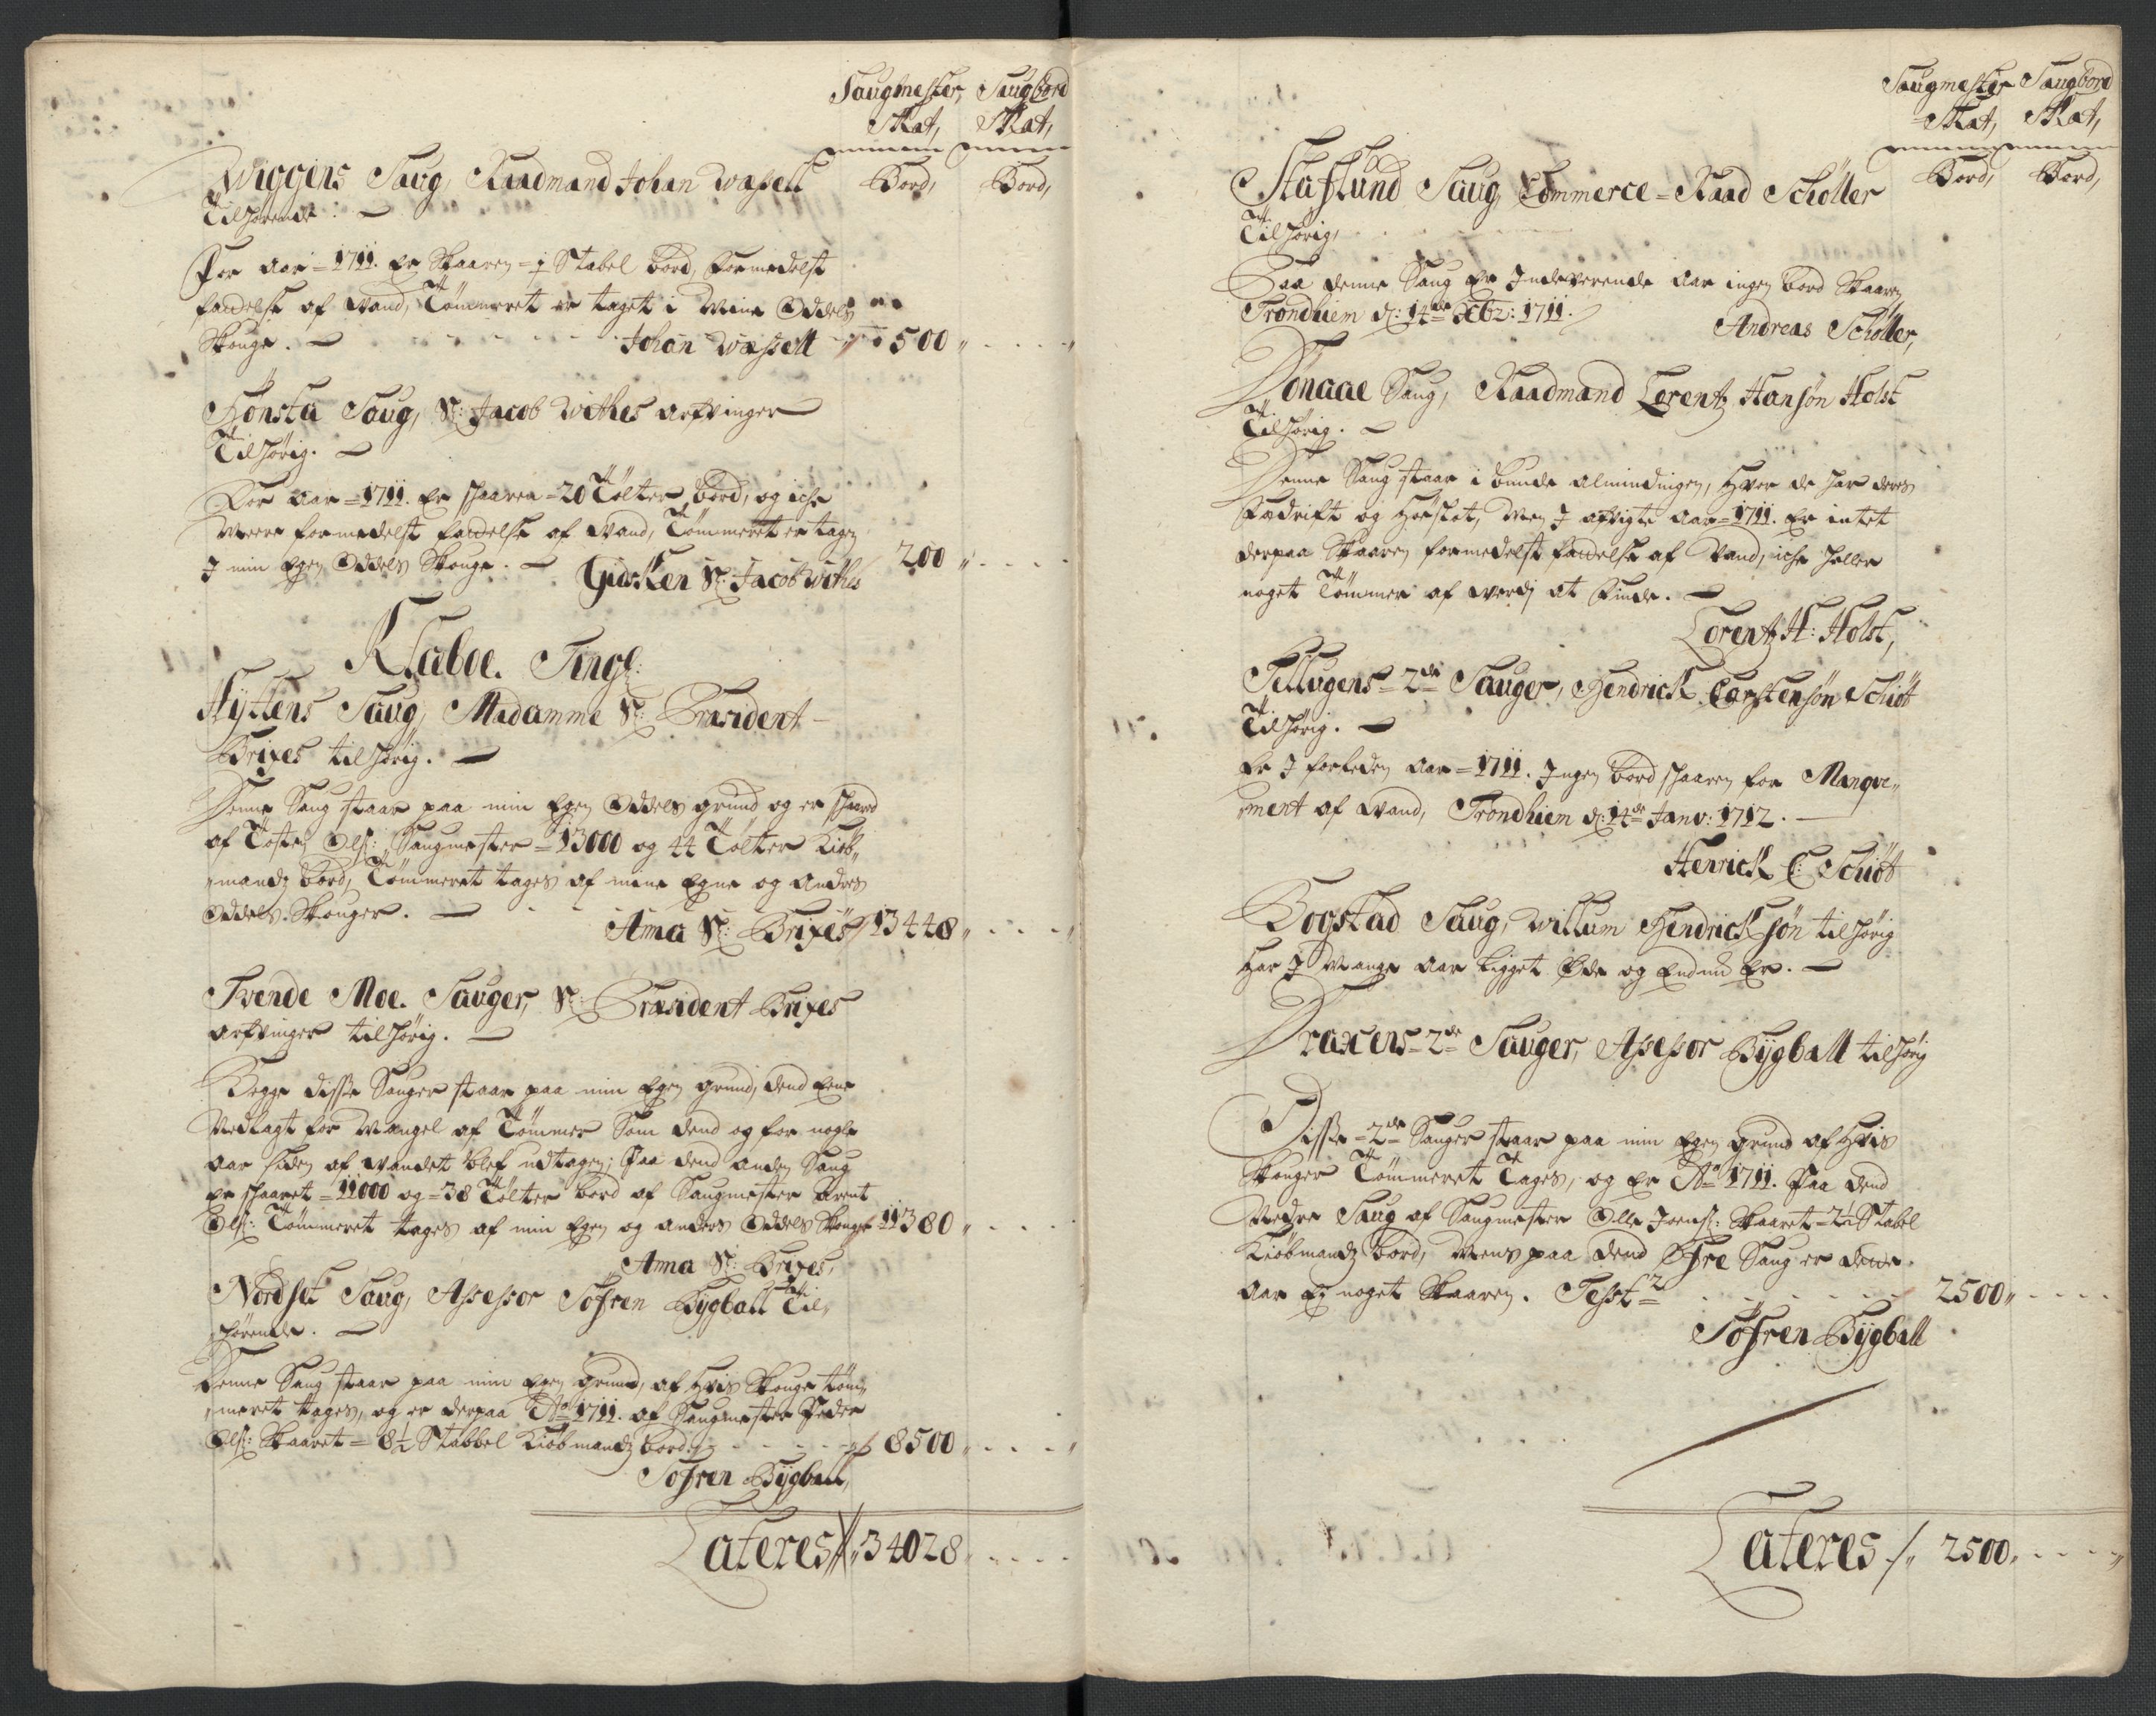 Saugmester, Saugbord
Skat, Skat,
Wiggens Saug, Raadmand Johan Wessell Bord, Bord,
Tilhörende.
For aar 1711. er Skaaren ½ Stabel bord, formedelst
faudelse af vand, Tömmeret er taget i mine Oddels
Skouge. Johan Wessell 500
Hönsta Saug, Sl: Jacob Withes arfvinger
Tilhörig.
For aar 1711. er skaaren 20 Tölter bord, og iche
meere formedelst faudelse af vand, Tömmeret er tagen
I min Egen Oddels Skouge. Giørken Sl: Jacob Withes 200
Klæboe. Tingl:
Hyttens Saug, Madamme Sl: Præsident
Brixes tilhörig.
Denne Saug staar paa min Egen Oddels grund og er skaaret
af Tosten Ols: Saugmester 13000 og 44 Tölter Kiöb-
mandz bord, Tömmeret tages af mine Egne og andres
Oddels Skouger. Anna Sl: Brixes 13448
Tvende Moe. Sauger, Sl: Præsident Brixes
arfvinger tilhörig.
Begge disse Sauger staar paa min Egen grund, dend Eene
Nedlagt for Mangel af Tömmer Som dend og for nogle
aar siden af vandet blef udtagen; Paa dend anden Saug
er skaaret 11000 og 38 Tölter bord af Saugmester Arent
Ols: Tömmeret tages af min Egen og anders Oddels Skouge 11380
Anna Sl: Brixes,
Nordset Saug, Assessor Söfren Bygball Til-
hörende.
Denne Saug staar paa min Egen Grund, af hvis Skouge töm-
meret tages, og er derpaa Ao 1711. af Saugmester Peder
Ols: Skaaret 8½ Stabbel Kiöbmandz bord. 8500
Söfren Bygball,
Lateres 34028
Saugmester Saugbord
Skat, Skat,
Stafslund Saug, Commerce-Raad Schöller Bord, Bord,
Tilhörig,
Paa denne Saug er Indeverende aar ingen bord Skaaren,
Trondhiem d: 14de Xbr: 1711.
Andreas Schöller,
Dönaae Saug, Raadmand Lorentz Hansøn Holst
Tilhörig.
Denne Saug staar i bunde almindingen, hvor de har deres
Fædrift og Höeslot, men I afvigte aar 1711. er intet
derpaa Skaaren formedelst faudelse af Vand, iche heller
noget Tömmer af werdj at finde.
Lorentz H: Holst,
Tellugens 2de Sauger, Hendrick Carstensøn Schiöt
Tilhörig.
Er I forleden aar 1711. Ingen bord skaaren for Manqve-
ment af vand, Trondhiem d: 14de Janv: 1712.
Henrick C: Schiöt
Bogstad Saug, Willum Hendricksøn tilhörig
Har I Mange aar ligget Øde og Endnu Er.
Draxens 2de Sauger, Assessor Bygball tilhörig
Disse 2de Sauger staar paa min Egen Grund af hvis
Skouger Tömmeret Tages, og er Ao 1711. Paa dend
Nedre Saug af Saugmester Olle Joens: Skaaret 2½ Stabel
Kiöbmandz bord, Mens paa dend Öfre Saug er dette
aar Ej noget Skaaren. Testr 2500
Söfren Bygball
Lateres 2500